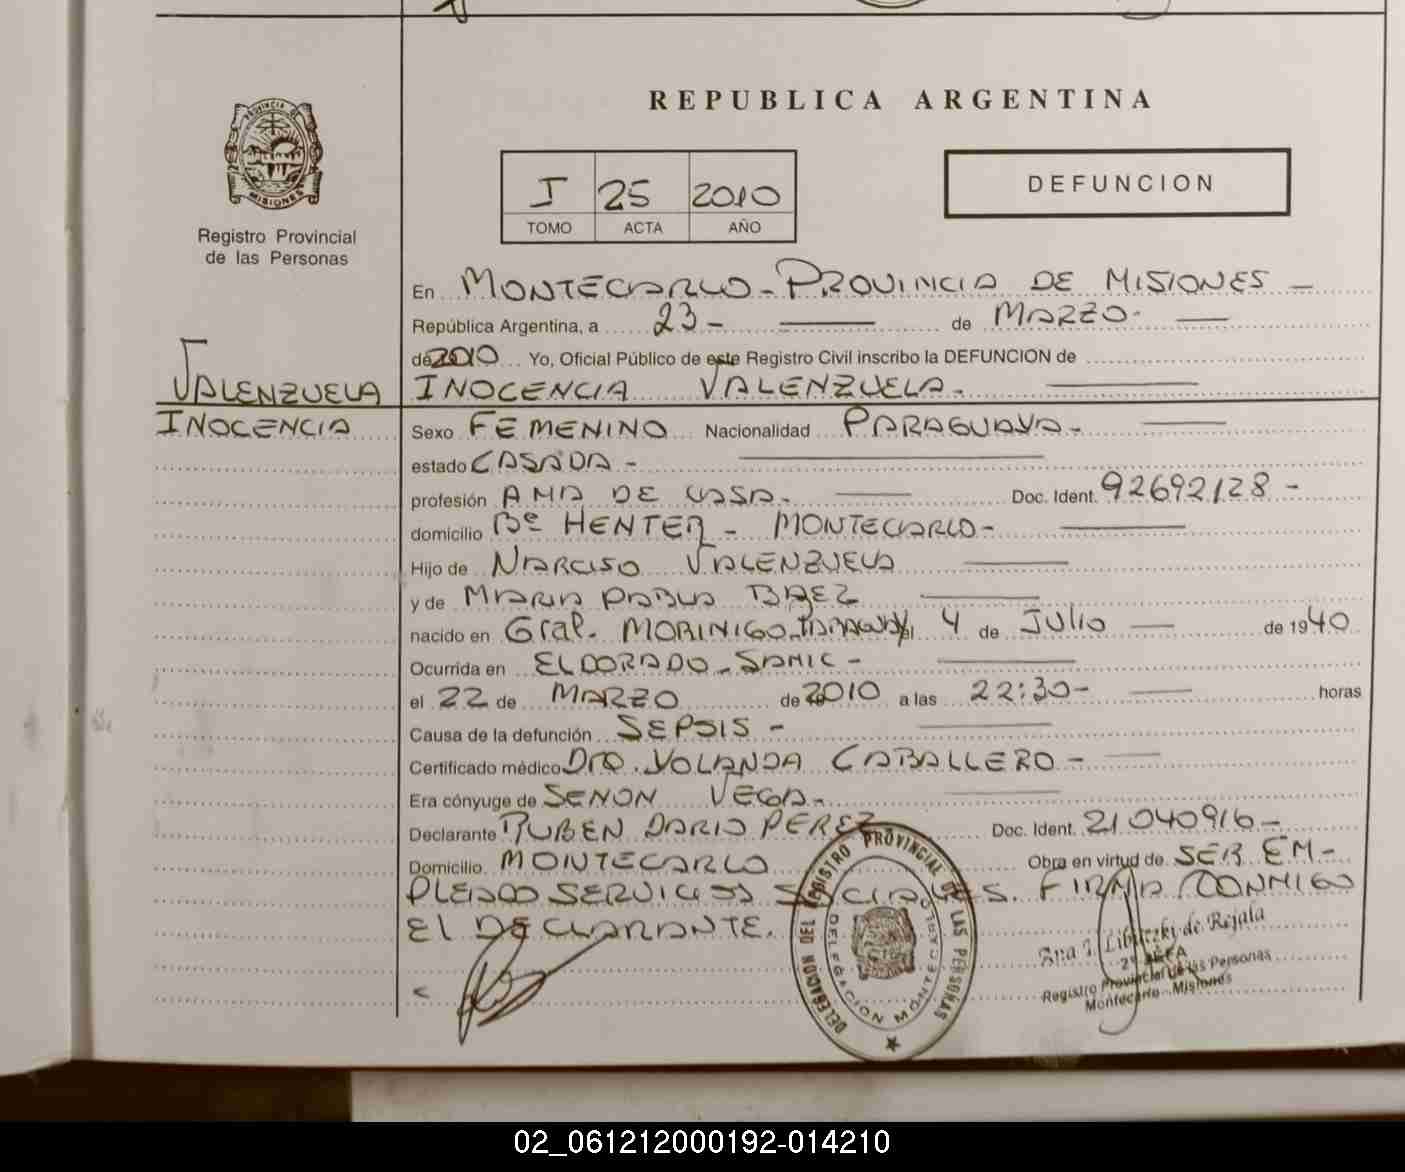 PROVINCIA DE
MISIONES
Registro Provincial
de las Personas
VALENZUELA
INOCENCIA
REPUBLICA ARGENTINA
I 25 2010
TOMO ACTA AÑO
DEFUNCION
En MONTECARLO - PROVINCIA DE MISIONES -
República Argentina, a 23 - de MARZO -
de 2010 Yo, Oficial Público de este Registro Civil inscribo la DEFUNCION de
INOCENCIA VALENZUELA.
Sexo FEMENINO Nacionalidad PARAGUAYA -
estado CASADA -
profesión AMA DE CASA. Doc. Ident. 92692128 -
domicilio Bº HENTER - MONTECARLO -
Hijo de NARCISO VALENZUELA
y de MARIA PABLA BAEZ
nacido en Gral. MORINIGO - PARAGUAY el 4 de JULIO de 1940
Ocurrida en ELDORADO - SAMIC -
el 22 de MARZO de 2010 a las 22:30 - horas
Causa de la defunción SEPSIS -
Certificado médico Dra. YOLANDA CABALLERO -
Era cónyuge de SENON VEGA -
Declarante RUBEN DARIO PEREZ Doc. Ident. 21040916 -
Domicilio MONTECARLO Obra en virtud de SER EM-
PLEADO SERVICIOS SOCIALES. FIRMA CONMIGO
EL DECLARANTE.
DELEGACION DEL REGISTRO PROVINCIAL DE LAS PERSONAS
DELEGACION MONTECARLO
Ana de Rejala
2º JEFA
Registro Provincial de las Personas
Montecarlo - Misiones
02_061212000192-014210